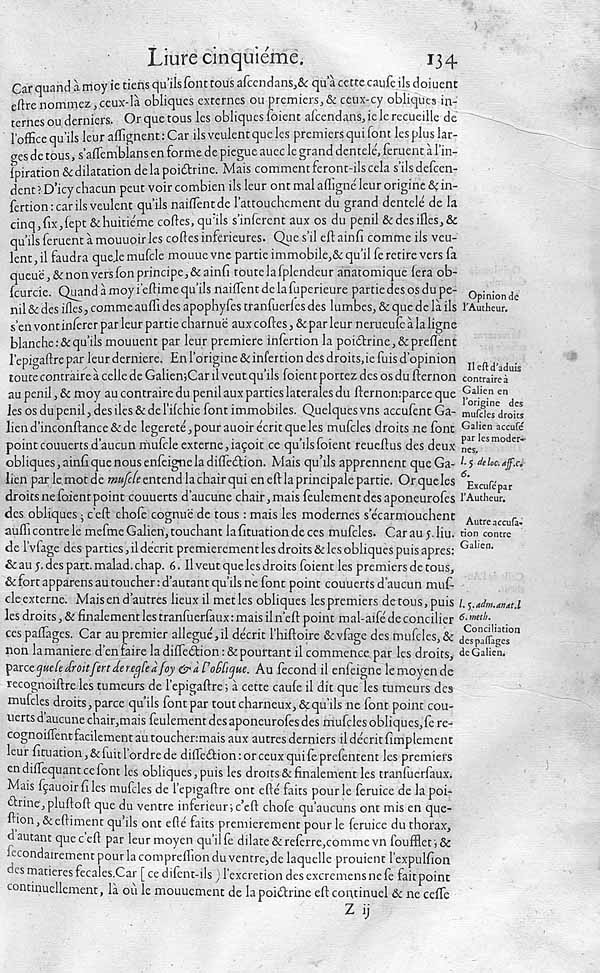 Liure cinquiéme. 134
Car quand à moy ie tiens qu'ils ſont tous aſcendans,& qu'à cette cauſe ils doiuent
eſtre nommez, ceux-là obliques externes ou premiers, & ceux-cy obliques in-
ternes ou derniers. Or que tous les obliques ſoient aſcendans, ie le recueille de
l'office qu'ils leur aſſignent: Car ils veulent que les premiers qui ſont les plus lar-
ges de tous, s'aſſemblans en forme de piegue auec le grand dentelé, ſeruent à l'in-
ſpiration & dilatation de la poictrine. Mais comment feront-ils cela s'ils deſcen-
dent? D'icy chacun peut voir combien ils leur ont mal aſſigné leur origine & in-
ſertion: car ils veulent qu'ils naiſſent de l'attouchement du grand dentelé de la
cinq, ſix, ſept & huitiéme coſtes, qu'ils s'inſerent aux os du penil & des iſles, &
qu'ils ſeruent à mouuoir les coſtes inferieures. Que s'il eſt ainſi comme ils veu-
lent, il faudra que,le muſcle mouue vne partie immobile,& qu'il ſe retire vers ſa
queuë, & non vers ſon principe, & ainſi toute la ſplendeur anatomique ſera ob-
ſcurcie. Quand à moy i'eſtime qu'ils naiſſent de la ſuperieure partie des os du pe-
nil & des iſles, comme auſſi des apophyſes tranſuerſes des lumbes, & que de là ils
s'en vont inſerer par leur partie charnuë aux coſtes, & par leur nerueuſe à la ligne
blanche: & qu'ils mouuent par leur premiere inſertion la poictrine, & preſſent
l'epigaſtre par leur derniere. En l'origine & inſertion des droits, ie ſuis d'opinion
toute contraire à celle de Galien;Car il veut qu'ils ſoient portez des os du ſternon
au penil, & moy au contraire du penil aux parties laterales du ſternon:parce que
les os du penil, des iles & de l'iſchie ſont immobiles. Quelques vns accuſent Ga-
lien d'inconſtance & de legereté, pour auoir écrit que les muſcles droits ne ſont
point couuerts d'aucun muſcle externe, iaçoit ce qu'ils ſoient reueſtus des deux
obliques, ainſi que nous enſeigne la diſſection. Mais qu'ils apprennent que Ga-
lien par le mot de muſcle entend la chair qui en eſt la principale partie. Or que les
droits ne ſoient point couuerts d'aucune chair, mais ſeulement des aponeuroſes
des obliques; c'eſt choſe cognuë de tous: mais les modernes s'écarmouchent
auſſi contre le meſme Galien, touchant la ſituation de ces muſcles. Car au 5. liu.
de l'vſage des parties, il décrit premierement les droits & les obliques puis apres:
& au 5. des part. malad. chap. 6. Il veut que les droits ſoient les premiers de tous,
& fort apparens au toucher: d'autant qu'ils ne ſont point couuerts d'aucun muſ-
cle externe. Mais en d'autres lieux il met les obliques les premiers de tous, puis
les droits, & finalement les tranſuerſaux: mais il n'eſt point mal-aiſé de concilier
ces paſſages. Car au premier allegué, il décrit l'hiſtoire & vſage des muſcles, &
non la maniere d'en faire la diſſection: & pourtant il commence par les droits,
parce que le droit ſert de regle à ſoy & à l'oblique. Au ſecond il enſeigne le moyen de
recognoiſtre les tumeurs de l'epigaſtre; à cette cauſe il dit que les tumeurs des
muſcles droits, parce qu'ils ſont par tout charneux, & qu'ils ne ſont point cou-
uerts d'aucune chair,mais ſeulement des aponeuroſes des muſcles obliques, ſe re-
cognoiſſent facilement au toucher:mais aux autres derniers il décrit ſimplement
leur ſituation, & ſuit l'ordre de diſſection: or ceux qui ſe preſentent les premiers
en diſſequant ce ſont les obliques, puis les droits & finalement les tranſuerſaux.
Mais ſçauoir ſi les muſcles de l'epigaſtre ont eſté faits pour le ſeruice de la poi-
ctrine, pluſtoſt que du ventre inferieur; c'eſt choſe qu'aucuns ont mis en que-
ſtion, & eſtiment qu'ils ont eſté faits premierement pour le ſeruice du thorax,
d'autant que c'eſt par leur moyen qu'il ſe dilate & reſerre,comme vn ſoufflet; &
ſecondairement pour la compreſſion du ventre, de laquelle prouient l'expulſion
des matieres fecales.Car [ ce diſent-ils ) l'excretion des excremens ne ſe fait point
continuellement, là où le mouuement de la poictrine eſt continuel & ne ceſſe
Z ij
Opinion de
l'Autheur.
Il eſt d'aduis
contraire à
Galien en
l'origine des
muſcles droits
Galien accuſé
par les moder-
nes.
l. 5 de loc. aff. c.
6.
Excuſé par
l'Autheur.
Autre accuſa-
tion contre
Galien.
l. 5. adm. anat. l
6. meth.
Conciliation
des paſſages
de Galien.